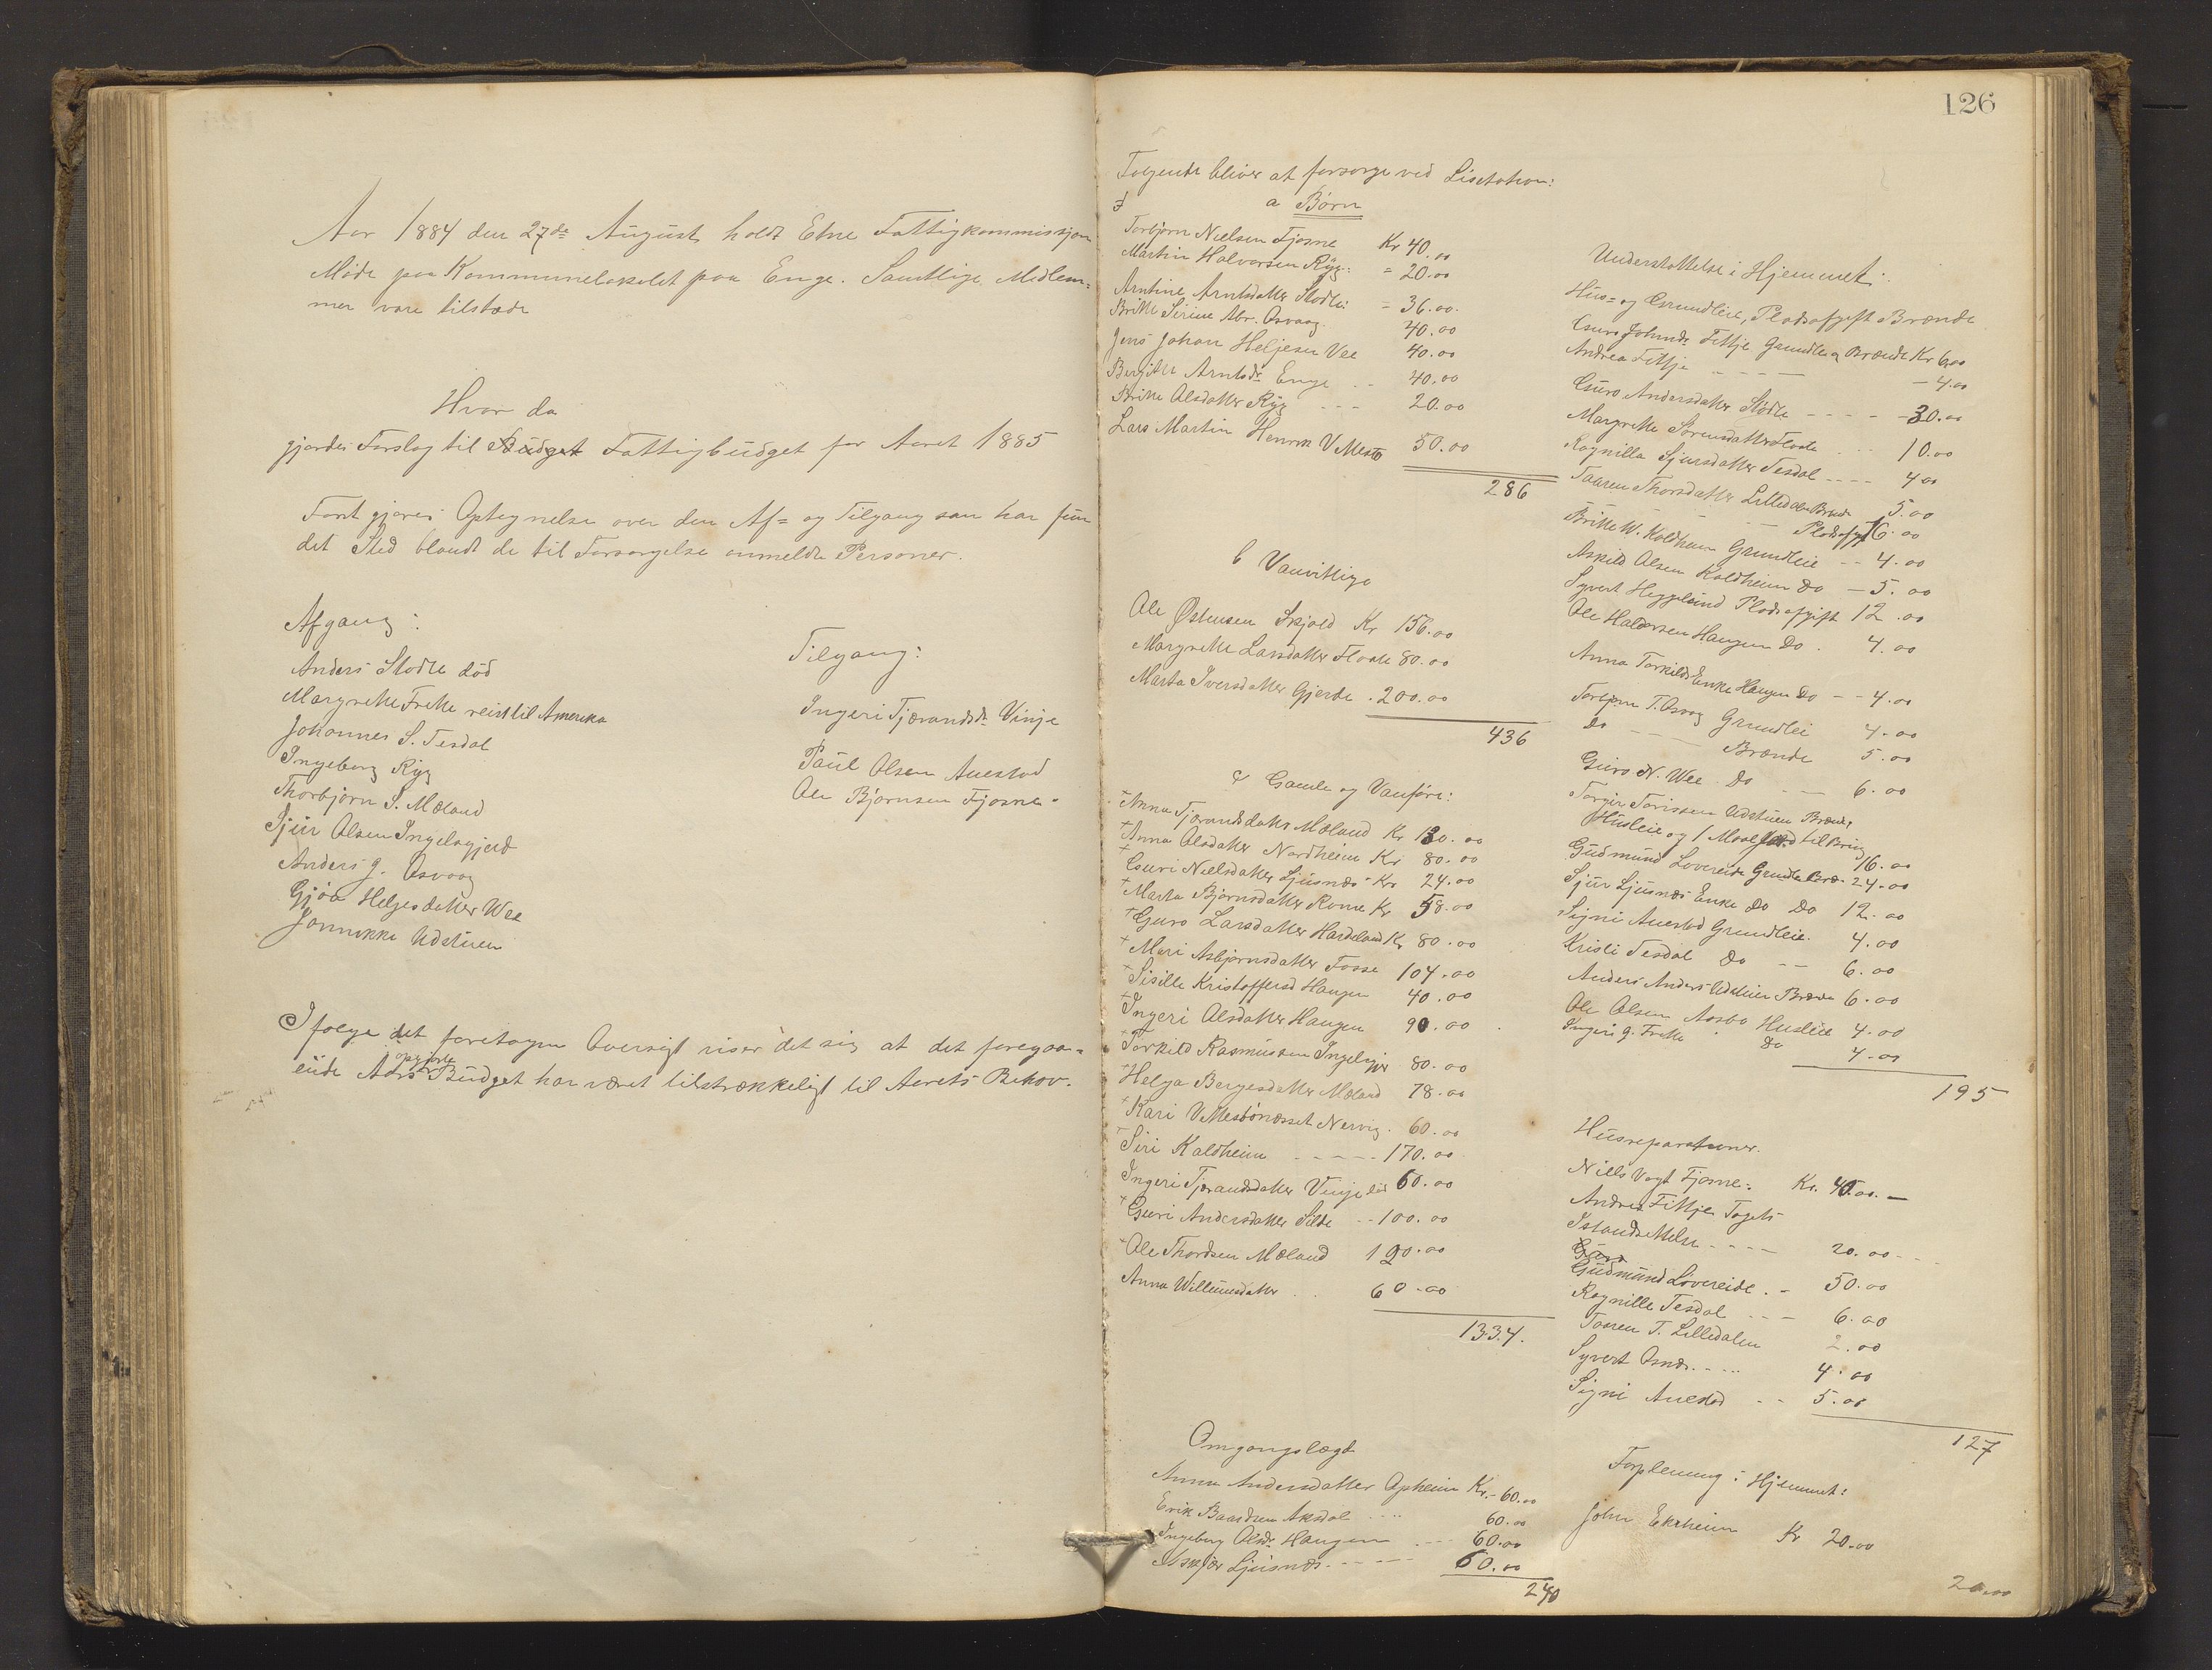 Aar 1884 den 27de August holdt Etne Fattigkommissjon
Møde paa Kommunelokalet paa Enge. Samtlige Medlem=
mer vare tilstæde
Hvor da
gjordes Forslag til Budget Fattigbudget for Aaret 1885
Først gjøres Optegnelse over den Af= og Tilgang som har fun
det Sted blandt de til Forsørgelse anmeldte Personer.
Afgang:
Anders Stødle død
Margrethe Frette reist til Amerika
Johannes S. Tesdal
Ingeborg Ryg
Thorbjørn S. Mæland
Sjur Olsen Ingelsgjerd
Anders J. Osvaag
Gjøa Helgesdatter Wee
Jannikke Udstuen
Tilgang:
Ingeri Tjerandsdr Vinje
Paul Olsen Auestad
Ole Bjørnsen Fjøsne
Ifølge det foretagne Oversigt viser det sig at det foregaa=
ende Aars opgjorte Budget har været tilstrækkeligt til Aarets Behov.
126
Følgende bliver at forsørge ved Lisetation:
a Børn
Torbjørn Nielsen Fjøsne Kr 40.00
Martin Halvorsen Ryg: = 20.00
Arntine Arntsdatter Stødle: = 36.00
Britte Sirine Abr. Osvaag 40.00
Jens Johan Heljesen Vee 40.00
Bergitte Arntsdr Enge -- 40.00
Britte Olsdatter Ryg --- 20.00
Lars Martin Henrik V Mestø 50.00
286
b Vanvittige
Ole Østensen Skjold Kr 156.00
Margrethe Larsdatter Flaate 80.00
Marta Iversdatter Gjerde . 200.00
436
c Gamle og Vanføre:
Anna Tjerandsdatter Mæland Kr 130.00
Anna Olsdatter Nordheim Kr 80.00
Guri Nielsdatter Ljusnes Kr 24.00
Marta Bjørnsdatter Rame Kr 58.00
Guro Larsdatter Hardeland Kr 80.00
Mari Asbjørnsdatter Fosse 104.00
Sisille Kristoffersd Haugen 40.00
Ingeri Olsdatter Haugen 90.00
Torkild Rasmussen Ingelsgjer 80.00
Helga Bergesdatter Mæland 78.00
Kari V Mestønesset Nervig . 60.00
Siri Kaldheim ----- 170.00
Ingeri Tjerandsdatter Vinje 60.00
Guri Andersdatter Silde -- 100.00
Ole Thordsen Mæland 120.00
Anna Willumsdatter . . 60.00
1334.
Omgangslægd
Anna Andersdatter Opheim Kr. 60.00
Erik Baardsen Aksdal .... 60.00
Ingeborg Olsdr Haugen .--- 60.00
Ljusnes ----- 60.00
240
Understøttelse i Hjemmet:
Hus= og Grundleie, Pladsafgift Brænde
Guro Johnsdr Fittje Grundleie & Brænde Kr 6.00
Andrea Fittje ----- - 4.00
Guro Andersdatter Stødle ---- -30.00
Margrethe Sørensdatter Flaate ... 10.00
Ragnilla Sjursdatter Tesdal ---- 4.00
Taaren Thorsdatter Lilledalen Brænde 5.00
Pladsafgift 16.00
Britte W. Kaldheim Grundleie -- 4.00
Askild Olsen Kaldheim Do - 5.00
Syvert Heggelund Pladsafgift 12.00
Ole Haldorsen Haugen Do . 4.00
Anna Torkilds Enke Haugen Do -- 4.00
Torbjørn T. Osvog Grundlei 4.00
Do ---- Brænde 5.00
Guro N. Wee Do --- 6.00
Torger Torissen Udstuen Brænde
Husleie og 1 Maal Jord til Brug 16.00
Gudmund Lovereide Grundl Bræ. 24.00
Sjur Ljusnes Enke Do Do 12.00
Signi Auestad Grundleie. 4.00
Kristi Tesdal Do -- 6.00
Anders Anders Udstuen Brænde 6.00
Ole Olsen Aasbø Husleie 4.00
Ingeri J. Frette Do 4.00
195
Husreparationer.
Niels Vogt Fjøsne: Kr. 40.00.-
Andrea Fittje Tagets
Istandsettelse ---- 20.00--
Guro
Gudmund Lovereide . - 50.00
Ragnille Tesdal --- 6.00
Taaren T. Lilledalen 2.00
Syvert Osnes. --.. 4.00
Signi Auestad -- 5.00
127
Forpleining i Hjemmet:
John Ekrheim Kr 20.00
20.00